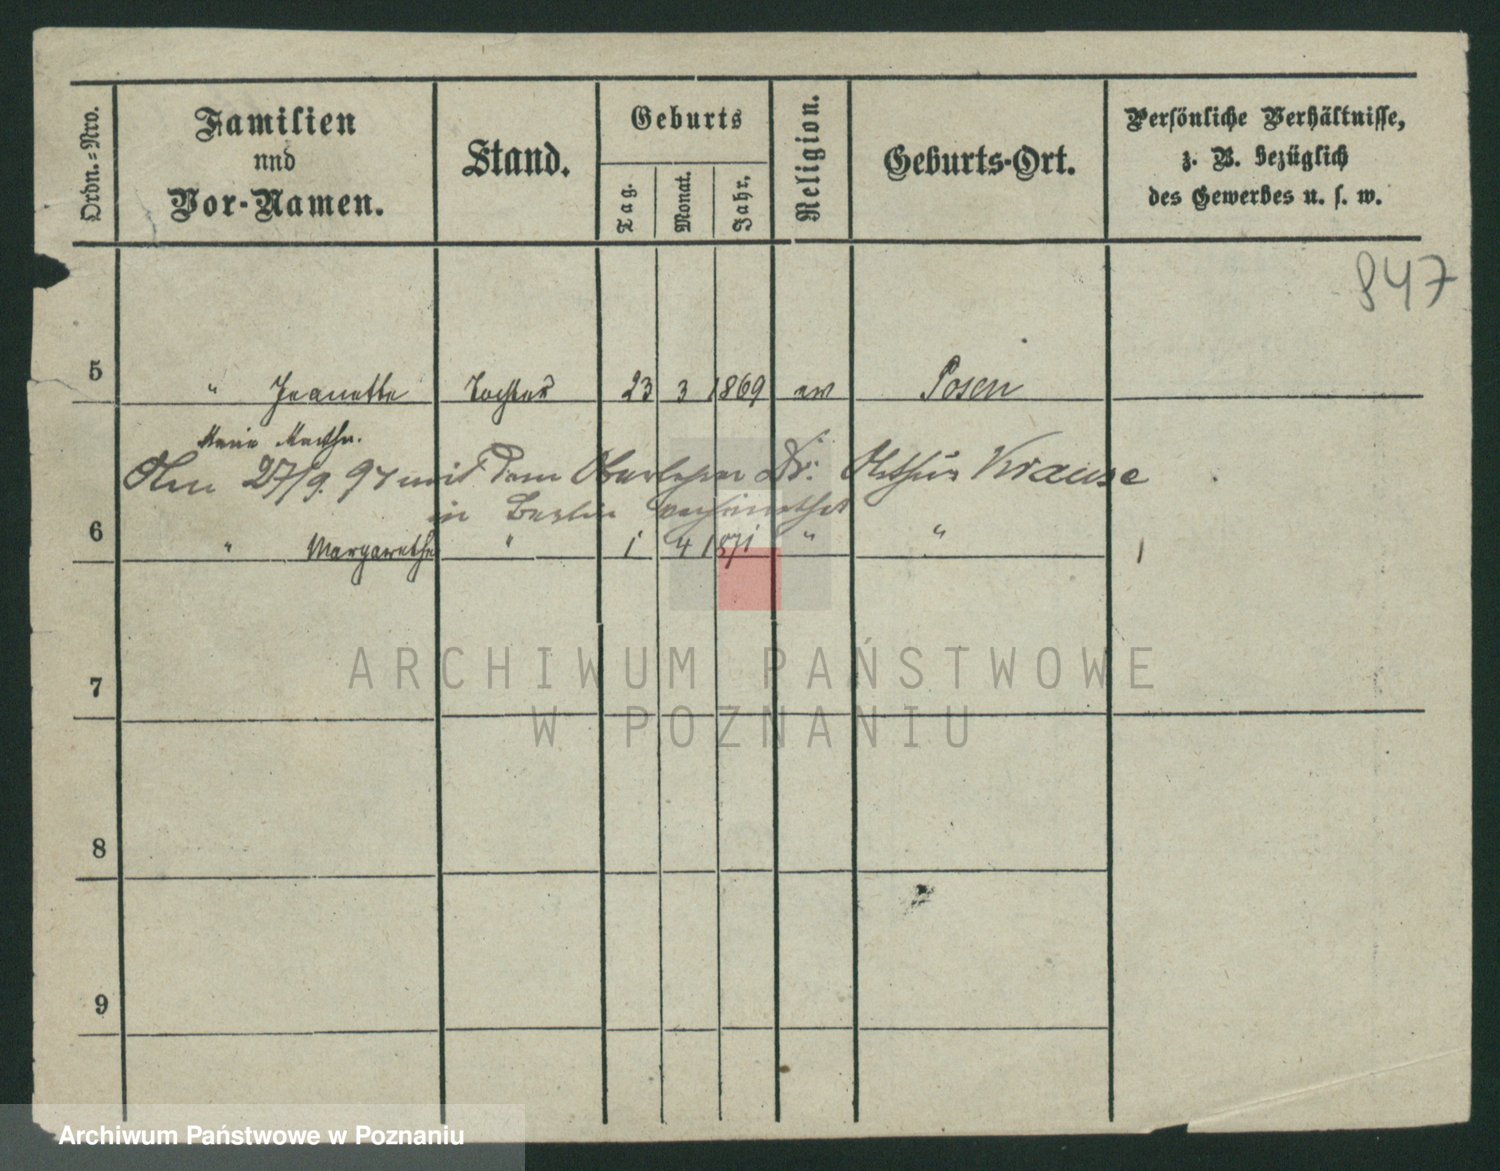 Ordn.=Nro.
Familien
und
Vor-Namen.
Stand.
Geburts
Tag.
Monat.
Jahr.
Religion.
Geburts-Ort.
Persönliche Verhältnisse,
z. B. bezüglich
des Gewerbes u. s. w.
847
5 " Jeanette Tochter 23 3 1869 ev Posen
Marie Martha.
Am 27/9. 97 mit dem Oberlehrer Dr. Arthur Krause
in Berlin verheirathet
6 " Margarethe " 1 4 1871 " "
7
8
9
ARCHIWUM PAŃSTWOWE
W POZNANIU
Archiwum Państwowe w Poznaniu